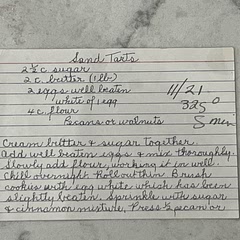 Sand Tarts
2 ½ c. sugar
2 c. butter (1 lb)
2 eggs well beaten
white of egg
4 c. flour
Pecans or walnuts
11/21
325°
5 min
Cream butter & sugar together.
Add well beaten eggs & mix thoroughly.
Slowly add flour, working it in well.
Chill overnight. Roll out thin. Brush
cookies with egg white which has been
slightly beaten. Sprinkle with sugar
& cinnamon mixture. Press ½ pecan or